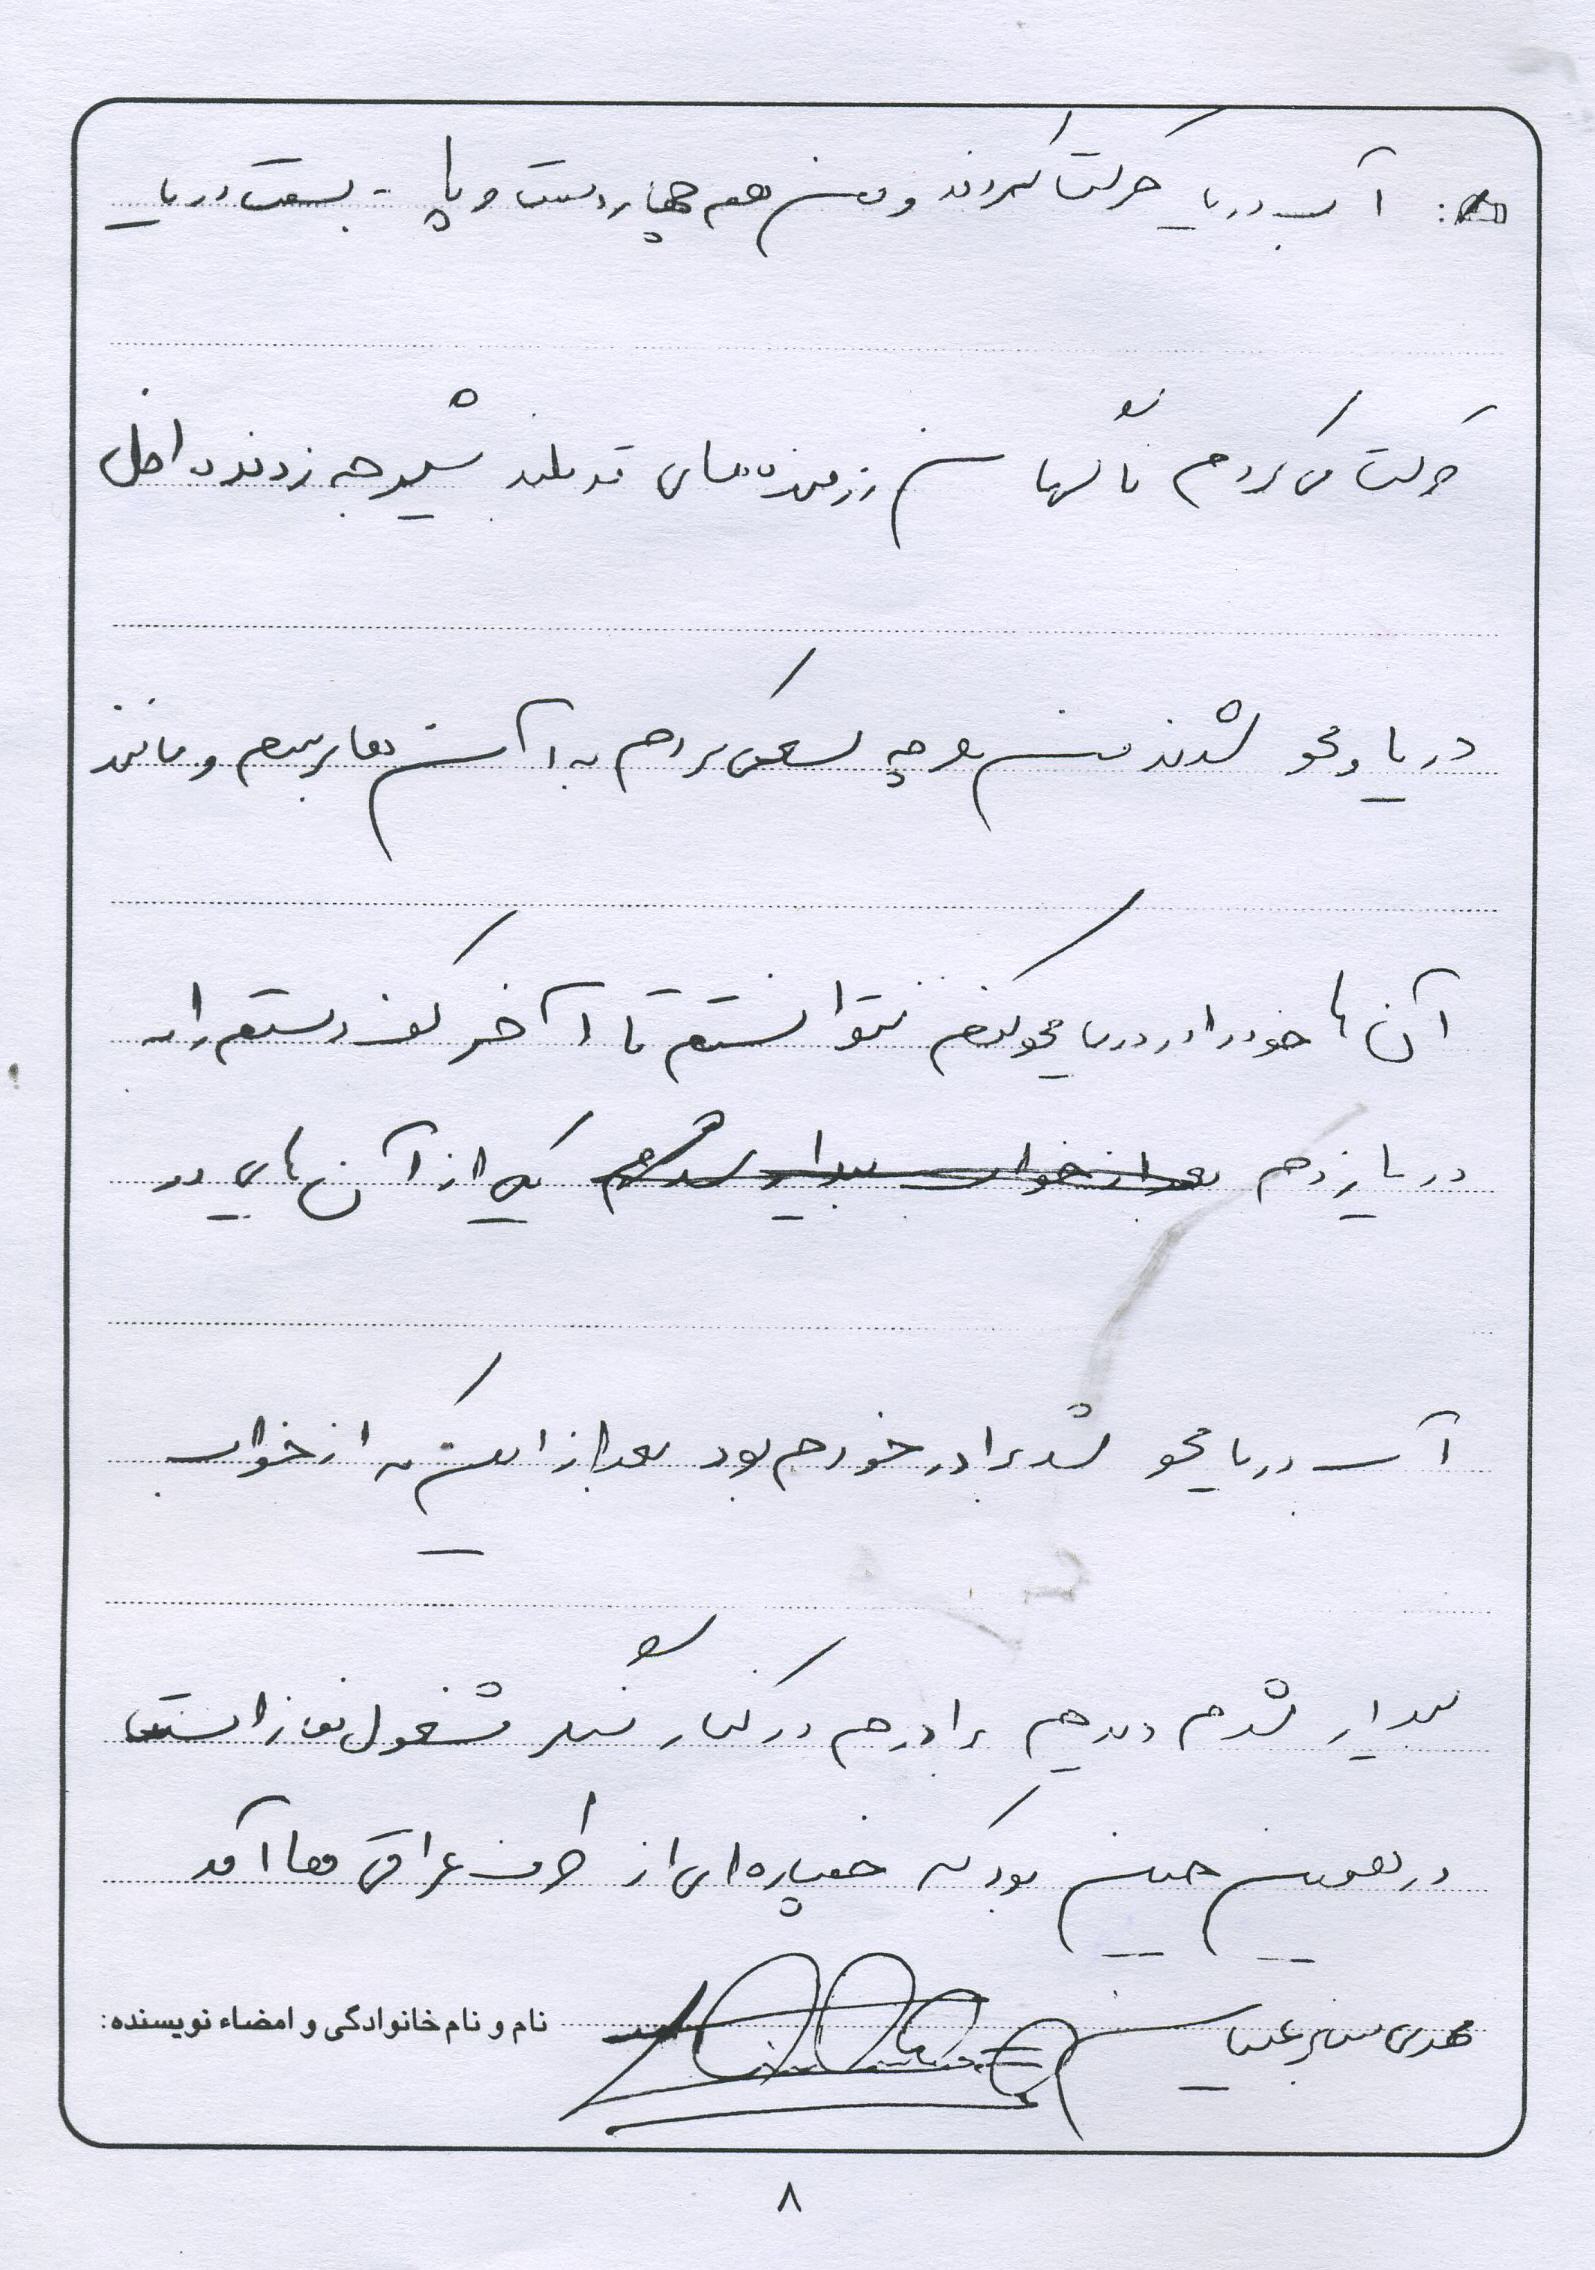 آب دریا حرکت کردند و من هم چهار دست و پا - بسمت دریا
حرکت می کردم تا آنها رزمنده های قد بلند شیرجه زدند داخل
دریا و محو شدند من هرچه سعی کردم به آن ها برسم و مانند
آن ها خود را در دریا محو کنم نتوانستم تا آخر کف دستم را به
دریا زدم بعد از خواب بیدار شدم یکی از آن هایی که در
آب دریا محو شد برادر خودم بود بعد از اینکه از خواب
بیدار شدم دیدم برادرم در کنار سنگر مشغول نماز است
در همین حین بود که خمپاره ای از طرف عراقی ها آمد
نام و نام خانوادگی و امضاء نویسنده: مهدی صابر عباسی
۸